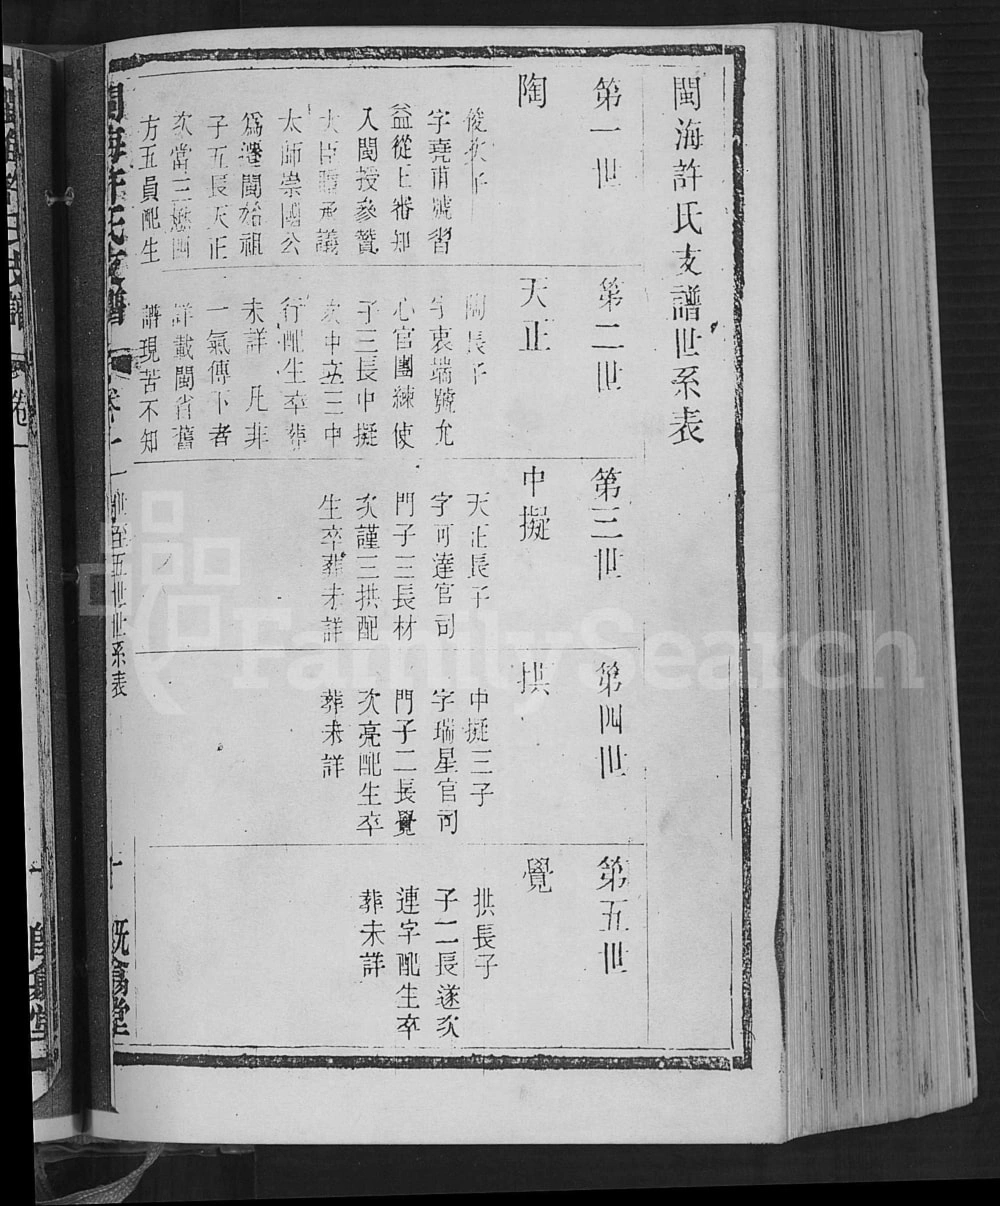 閩海許氏支譜世系表
第一世
陶
俊次子
字堯甫號習
益從王審知
入閩授參贊
大臣贈承議
太師崇國公
爲遷閩始祖
子五長天正
次當三懋四
方五員配生
第二世
天正
陶長子
字衷端號允
心官團練使
子三長中擬
次中立三中
行配生卒葬
未詳 凡非
一氣傳下者
詳載閩省舊
譜現苦不知
第三世
中擬
天正長子
字可達官司
門子三長材
次謹三拱配
生卒葬未詳
第四世
拱
中擬三子
字瑞星官司
門子二長覺
次亮配生卒
葬未詳
第五世
覺
拱長子
子二長遂次
連字配生卒
葬未詳
閩海許氏支譜
卷十一
世至五世世系表
十
既翕堂
FamilySearch